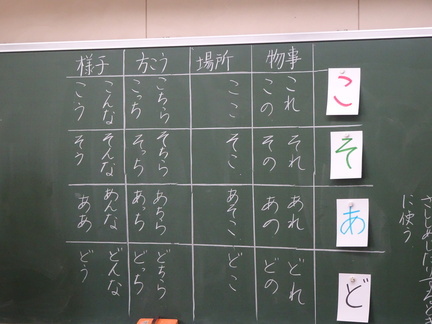 こ
そ
あ
ど
物事
これ
この
それ
その
あれ
あの
どれ
どの
場所
ここ
そこ
あそこ
どこ
方こう
こちら
こっち
そちら
そっち
あちら
あっち
どちら
どっち
様子
こんな
こう
そんな
そう
あんな
ああ
どんな
どう
に使う